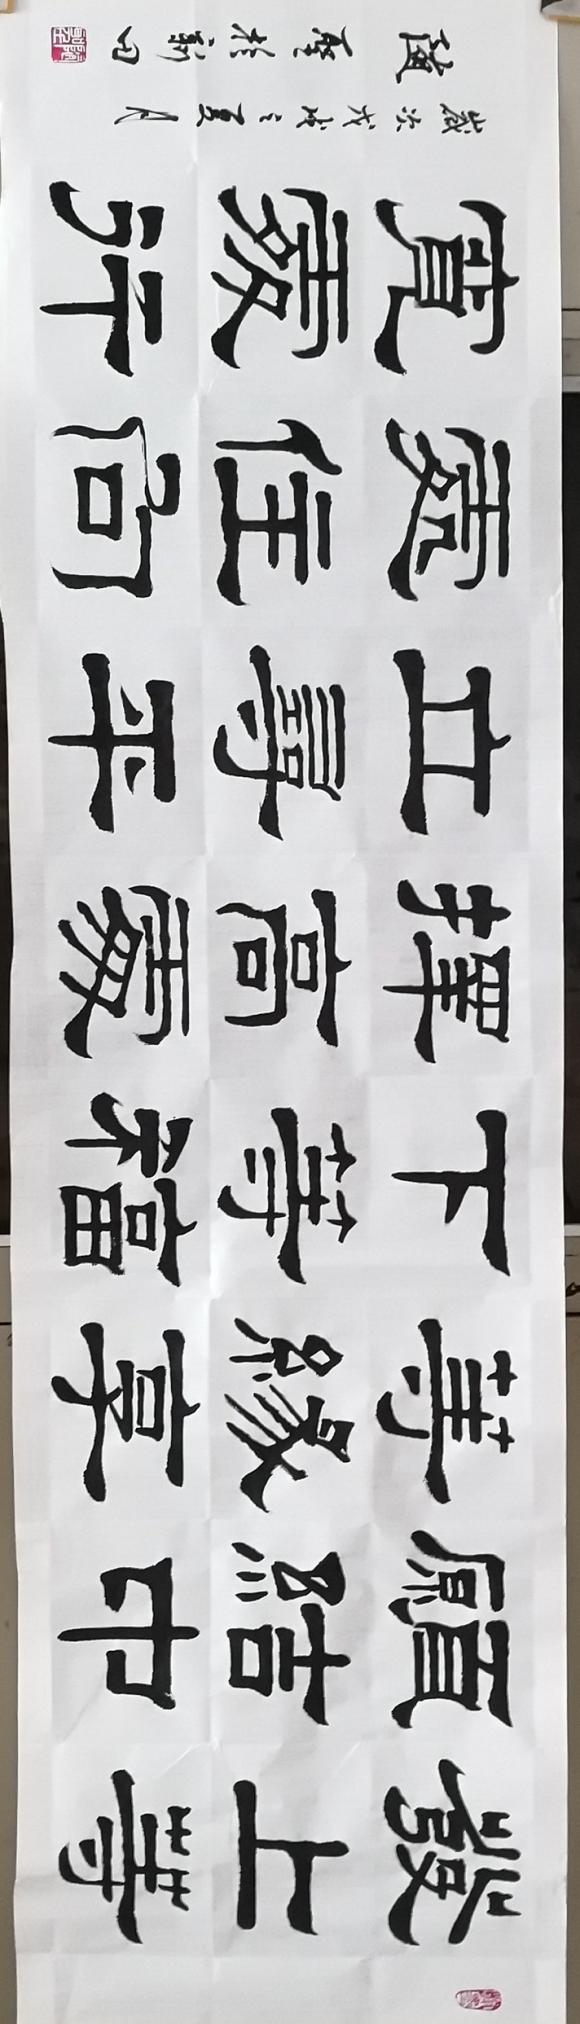 發上等
願結中
等緣享
下等福
擇高處
立尋平
處住向
寬處行
歲次戊戌之夏月